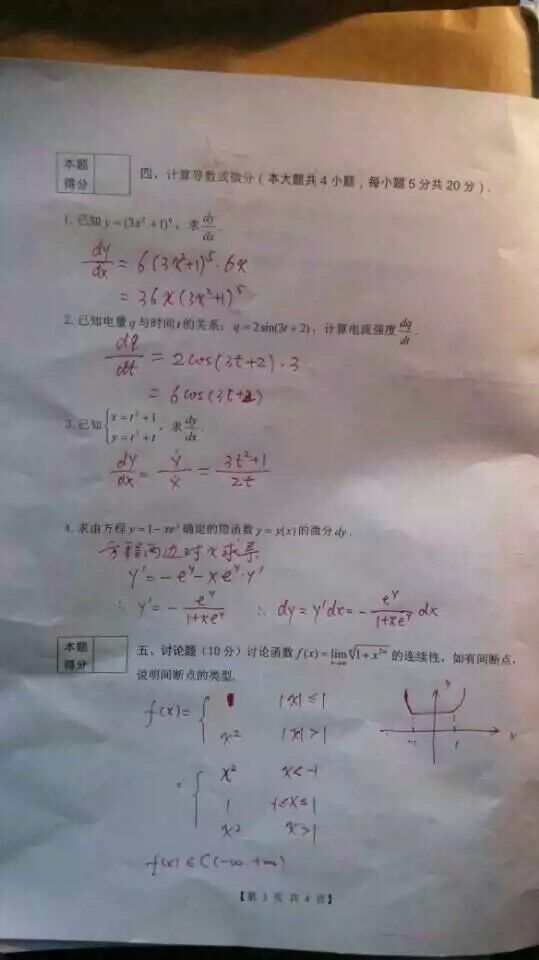 本题
得分
四、计算导数或微分(本大题共4小题,每小题5分共20分).
1. 已知 y=(3x²+1)⁶, 求 dy/dx.
dy/dx = 6(3x²+1)⁵·6x
= 36x(3x²+1)⁵
2. 已知电量 q 与时间 t 的关系: q=2sin(3t+2), 计算电流强度 dq/dt.
dq/dt = 2cos(3t+2)·3
= 6cos(3t+2)
3. 已知 {x=t²+1 y=t³+t, 求 dy/dx.
dy/dx = ẏ/ẋ = (3t²+1)/2t
4. 求由方程 y=1-xeʸ 确定的隐函数 y=y(x) 的微分 dy.
方程两边对x求导
y'=-eʸ-xeʸ·y'
∴ y'=-eʸ/(1+xeʸ) ∴ dy=y'dx=-eʸ/(1+xeʸ) dx
本题
得分
五、讨论题(10分)讨论函数 f(x)=lim ⁿ√(1+x²ⁿ) 的连续性, 如有间断点,
说明间断点的类型.
f(x)= { 1 |x|≤1
x² |x|>1
= { x² x<-1
1 -1≤x≤1
x² x>1
y
-1 1 x
f(x)∈C(-∞ +∞)
【第 3 页 共 4 页】